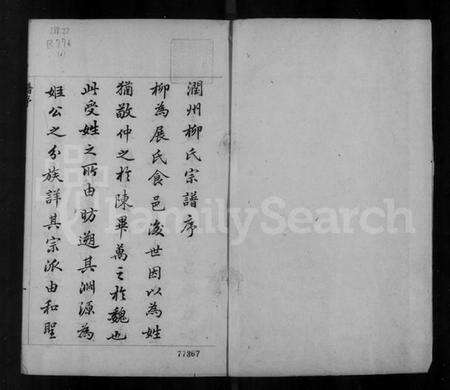 潤州柳氏宗譜序
柳為展氏食邑後世因以為姓
猶敬仲之於陳畢萬之於魏也
此受姓之所由昉遡其淵源為
姬公之分族詳其宗派由和聖
77367
FamilySearch